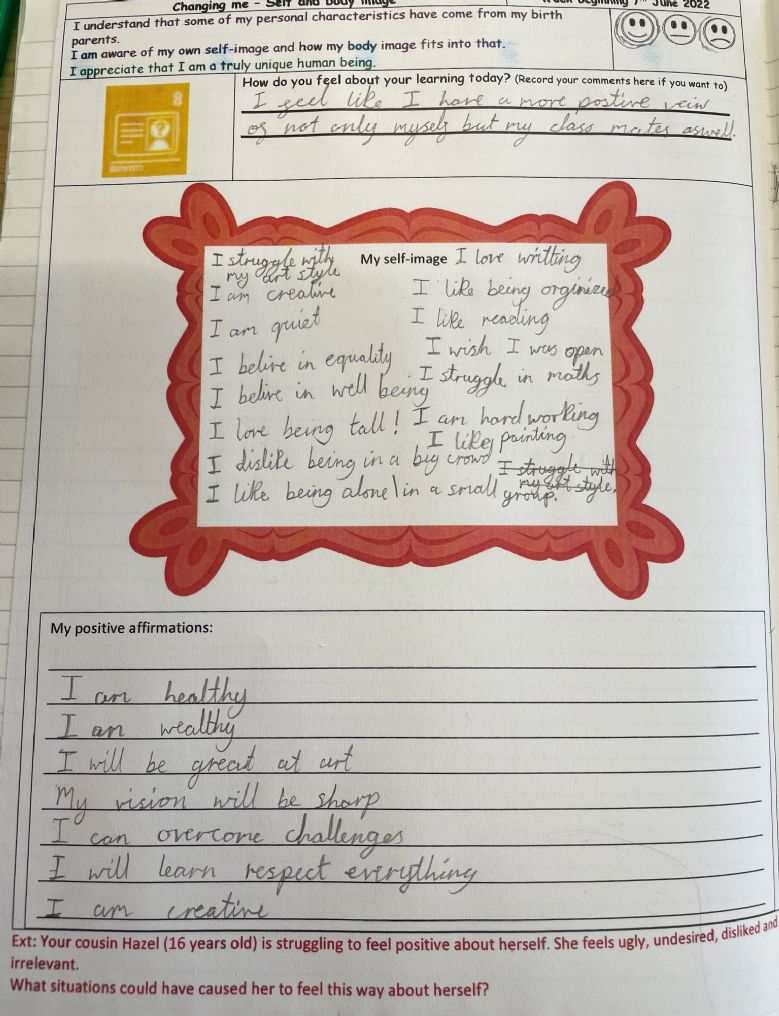 Changing me - Self and body image
Week beginning 7th June 2022
I understand that some of my personal characteristics have come from my birth
parents.
I am aware of my own self-image and how my body image fits into that.
I appreciate that I am a truly unique human being.
How do you feel about your learning today? (Record your comments here if you want to)
I feel like I have a more postive veiw
of not only myself but my class mates aswell.
8
My self-image
I struggle with
my art style
I am creative
I am quiet
I belive in equality
I belive in well being
I love being tall!
I dislike being in a big crowd
I like being alone\in a small group.
I love writting
I like being orginized
I like reading
I wish I was open
I struggle in maths
I am hard working
I like painting
I struggle with
my art style.
My positive affirmations:
I am healthy
I am wealthy
I will be great at art
My vision will be sharp
I can overcome challenges
I will learn respect everything
I am creative
Ext: Your cousin Hazel (16 years old) is struggling to feel positive about herself. She feels ugly, undesired, disliked and
irrelevant.
What situations could have caused her to feel this way about herself?